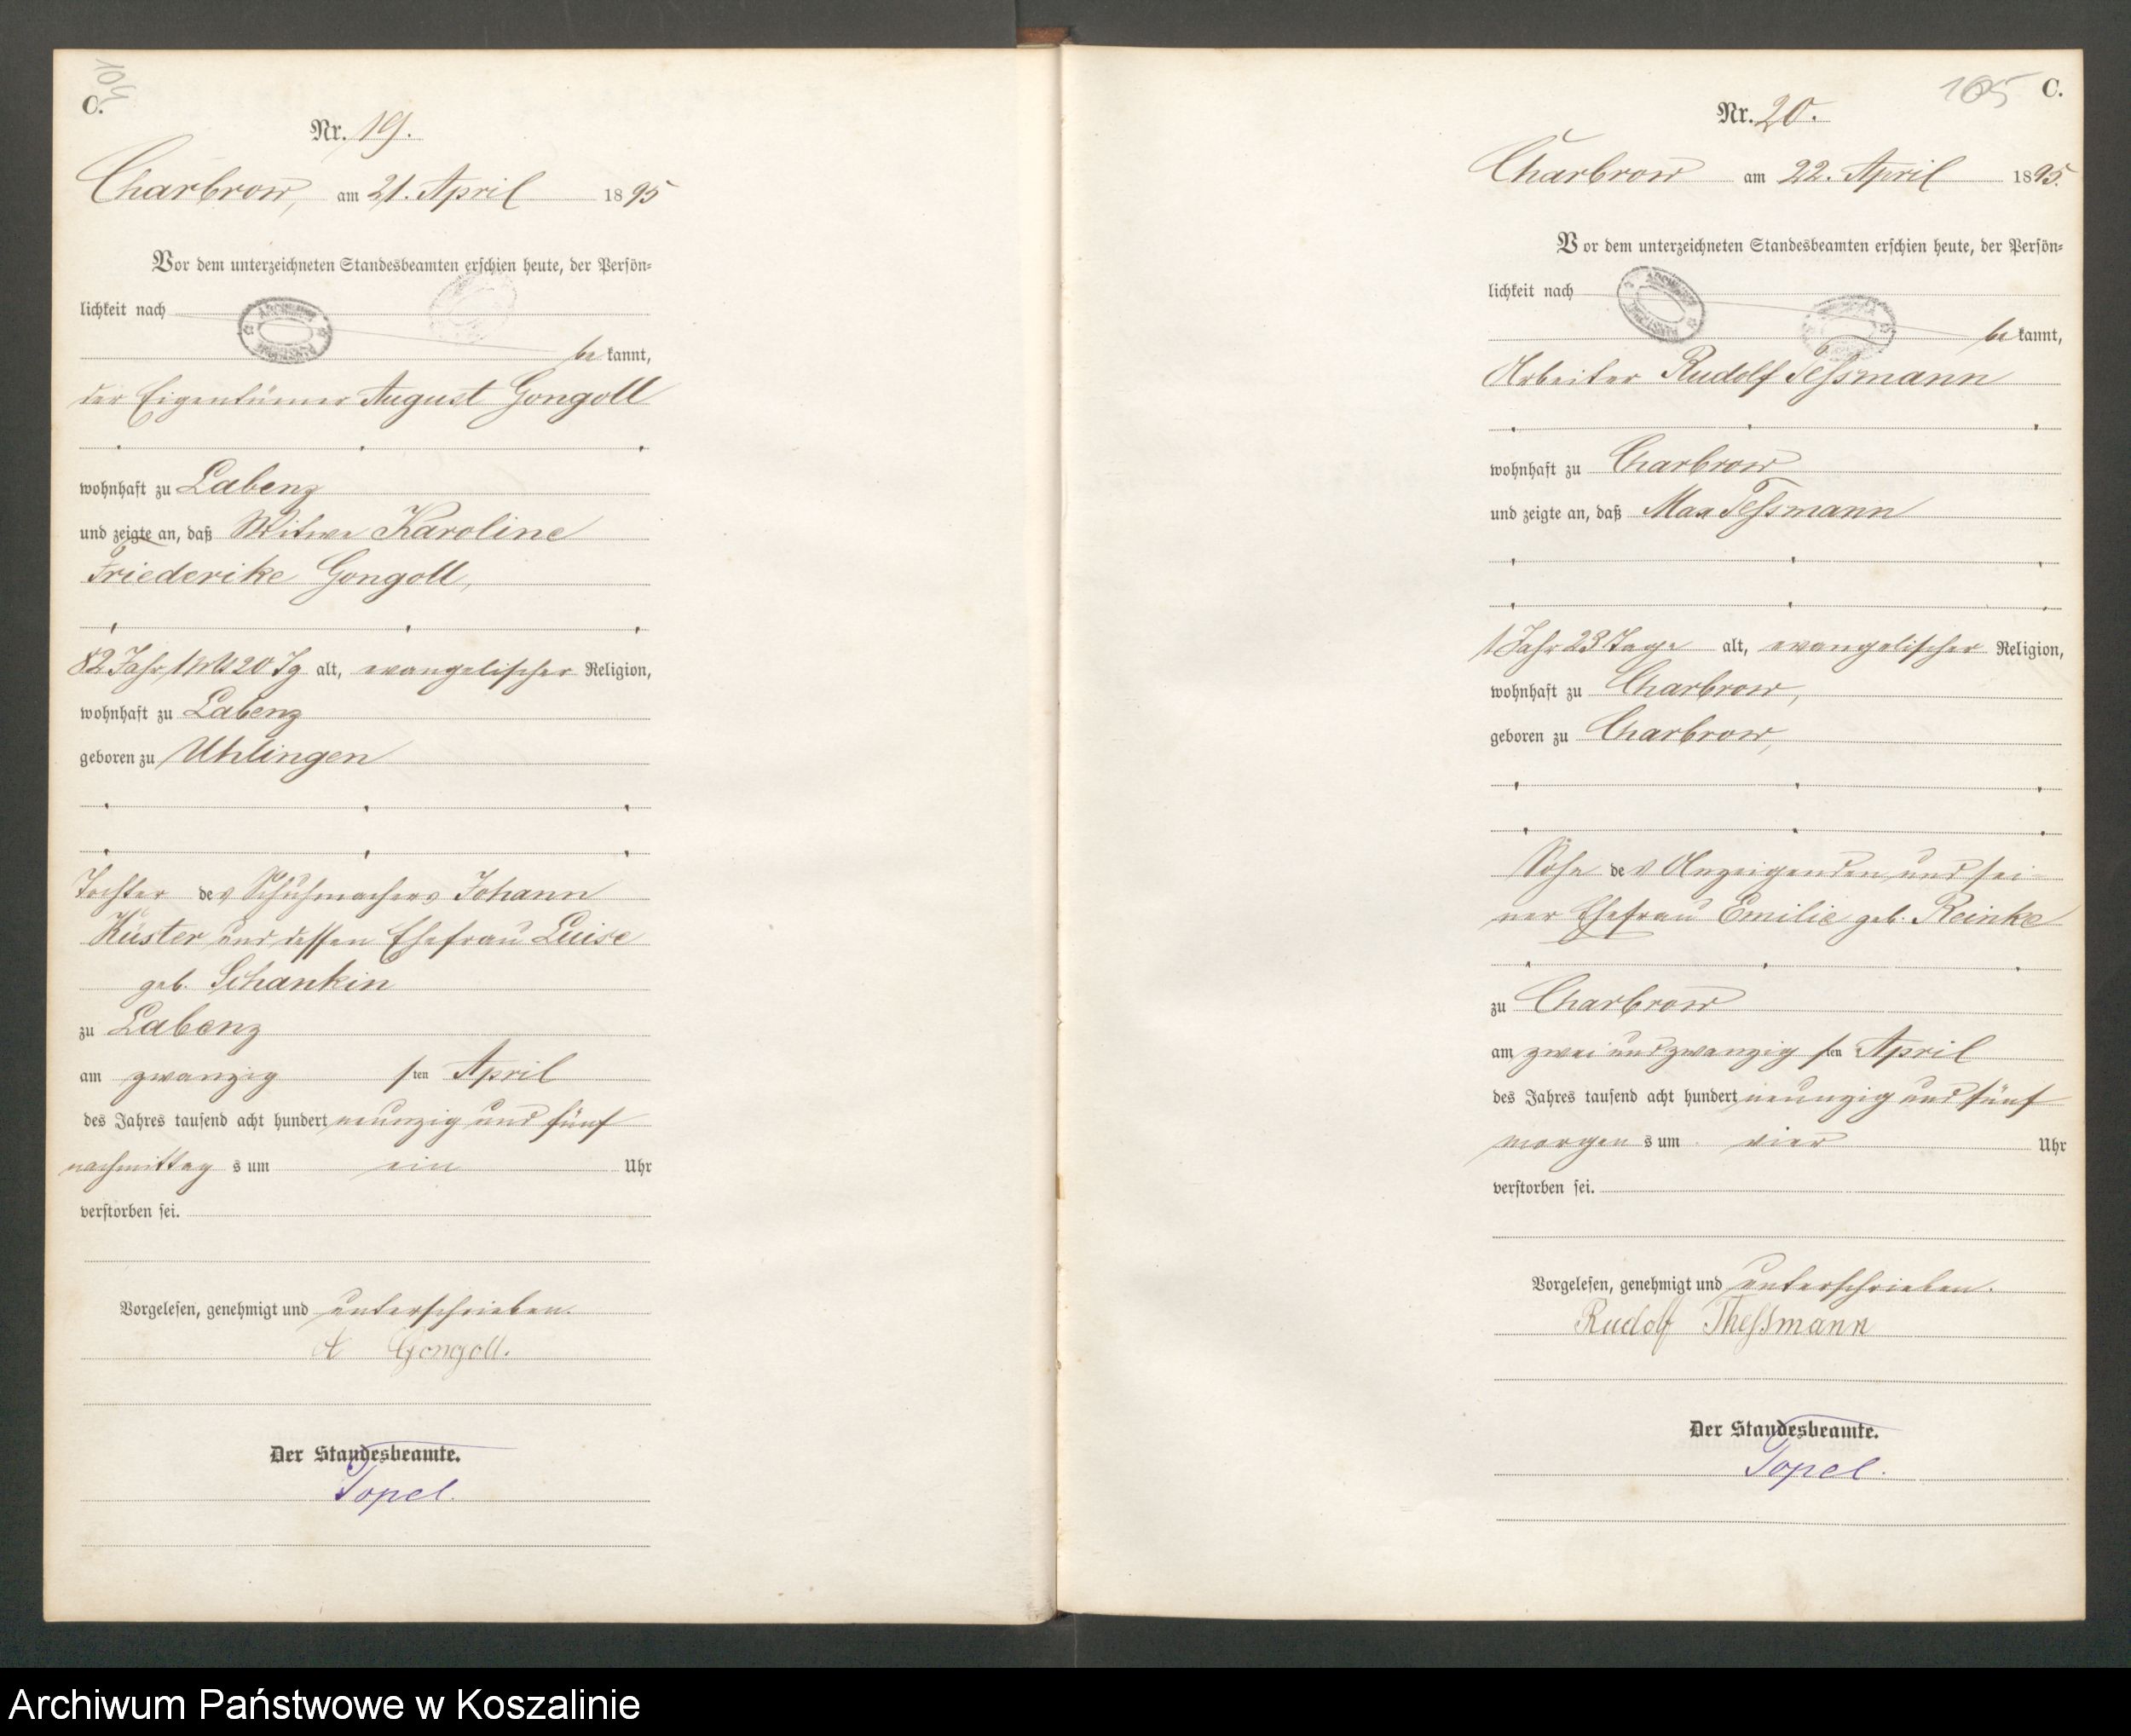 104
C.
Nr. 19.
Charbrow, am 21. April 1895
Vor dem unterzeichneten Standesbeamten erschien heute, der Persön=
lichkeit nach
be kannt,
der Eigentümer August Gongoll
wohnhaft zu Labenz
und zeigte an, daß Witwe Karoline
Friederike Gongoll,
82 Jahr 1 Mt 20 Tg alt, evangelischer Religion,
wohnhaft zu Labenz
geboren zu Uhlingen
Tochter des Schuhmachers Johann
Küster und dessen Ehefrau Luise
geb. Schankin
zu Labenz
am zwanzig sten April
des Jahres tausend acht hundert neunzig und fünf
nachmittag s um ein Uhr
verstorben sei.
Vorgelesen, genehmigt und unterschrieben.
A Gongoll.
Der Standesbeamte.
Topel.
165 C.
Nr. 20.
Charbrow am 22. April 1895.
Vor dem unterzeichneten Standesbeamten erschien heute, der Persön=
lichkeit nach
be kannt,
Arbeiter Rudolf Teßmann
wohnhaft zu Charbrow
und zeigte an, daß Max Teßmann
1 Jahr 23 Tage alt, evangelischer Religion,
wohnhaft zu Charbrow,
geboren zu Charbrow,
Sohn des Anzeigenden und sei=
ner Ehefrau Emilie geb. Reinke
zu Charbrow
am zwei und zwanzig sten April
des Jahres tausend acht hundert neunzig und fünf
morgen s um vier Uhr
verstorben sei.
Vorgelesen, genehmigt und unterschrieben.
Rudolf Theßmann
Der Standesbeamte.
Topel.
Archiwum Państwowe w Koszalinie